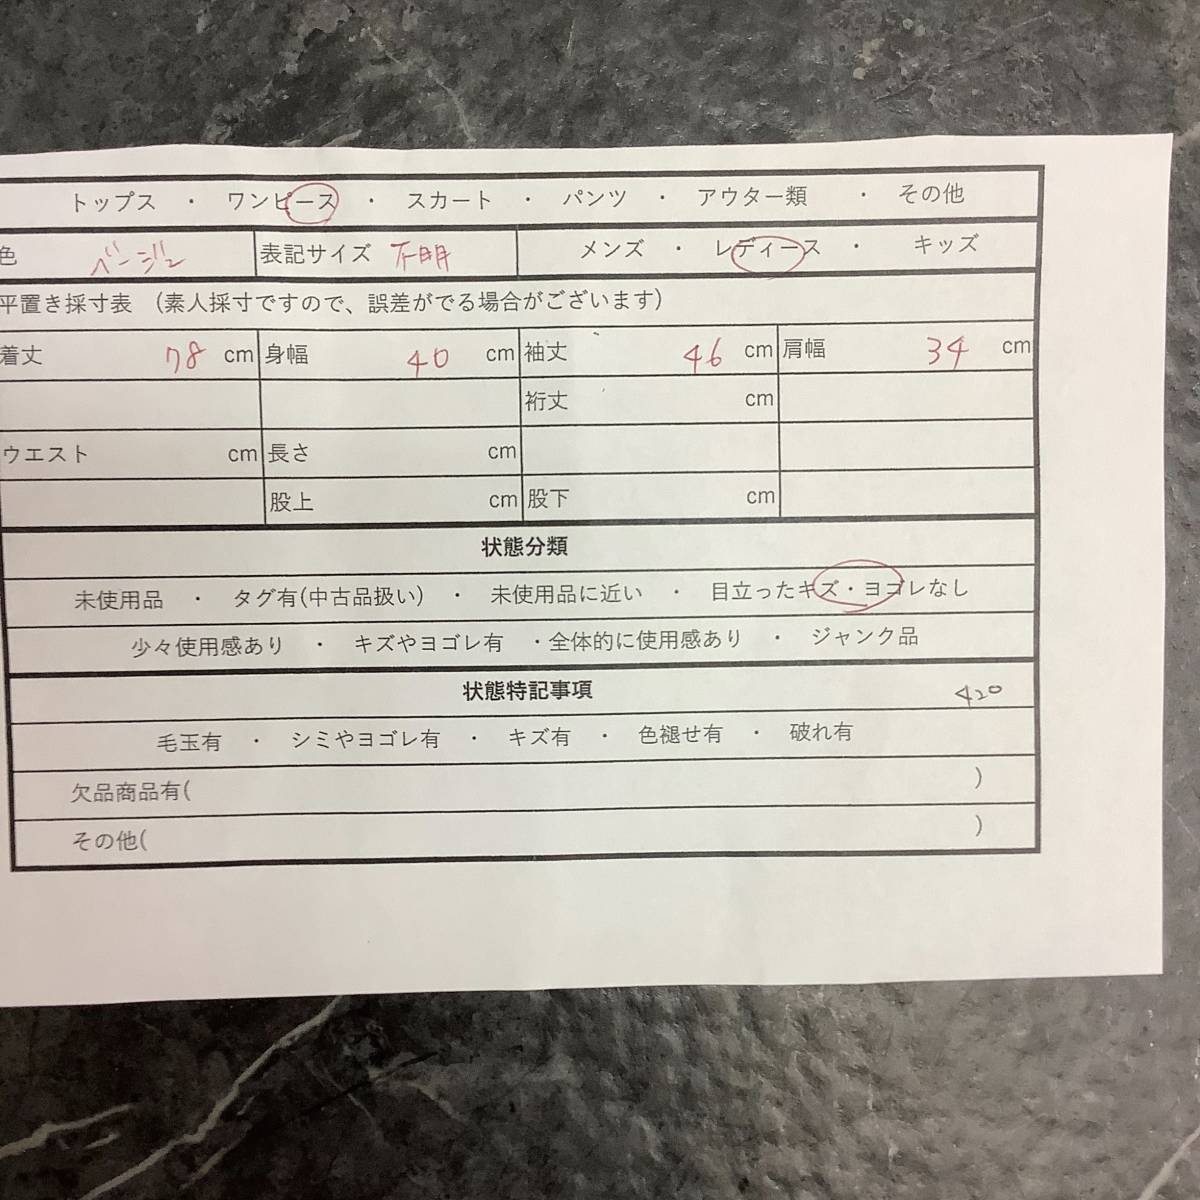 トップス ・ ワンピース ・ スカート ・ パンツ ・ アウター類 ・ その他
色 ベージュ 表記サイズ 不明 メンズ ・ レディース ・ キッズ
平置き採寸表 (素人採寸ですので、誤差がでる場合がございます)
着丈 78 cm 身幅 40 cm 袖丈 46 cm 肩幅 34 cm
裄丈 cm
ウエスト cm 長さ cm
股上 cm 股下 cm
状態分類
未使用品 ・ タグ有(中古品扱い) ・ 未使用品に近い ・ 目立ったキズ・ヨゴレなし
少々使用感あり ・ キズやヨゴレ有 ・全体的に使用感あり ・ ジャンク品
状態特記事項 420
毛玉有 ・ シミやヨゴレ有 ・ キズ有 ・ 色褪せ有 ・ 破れ有
欠品商品有( )
その他( )